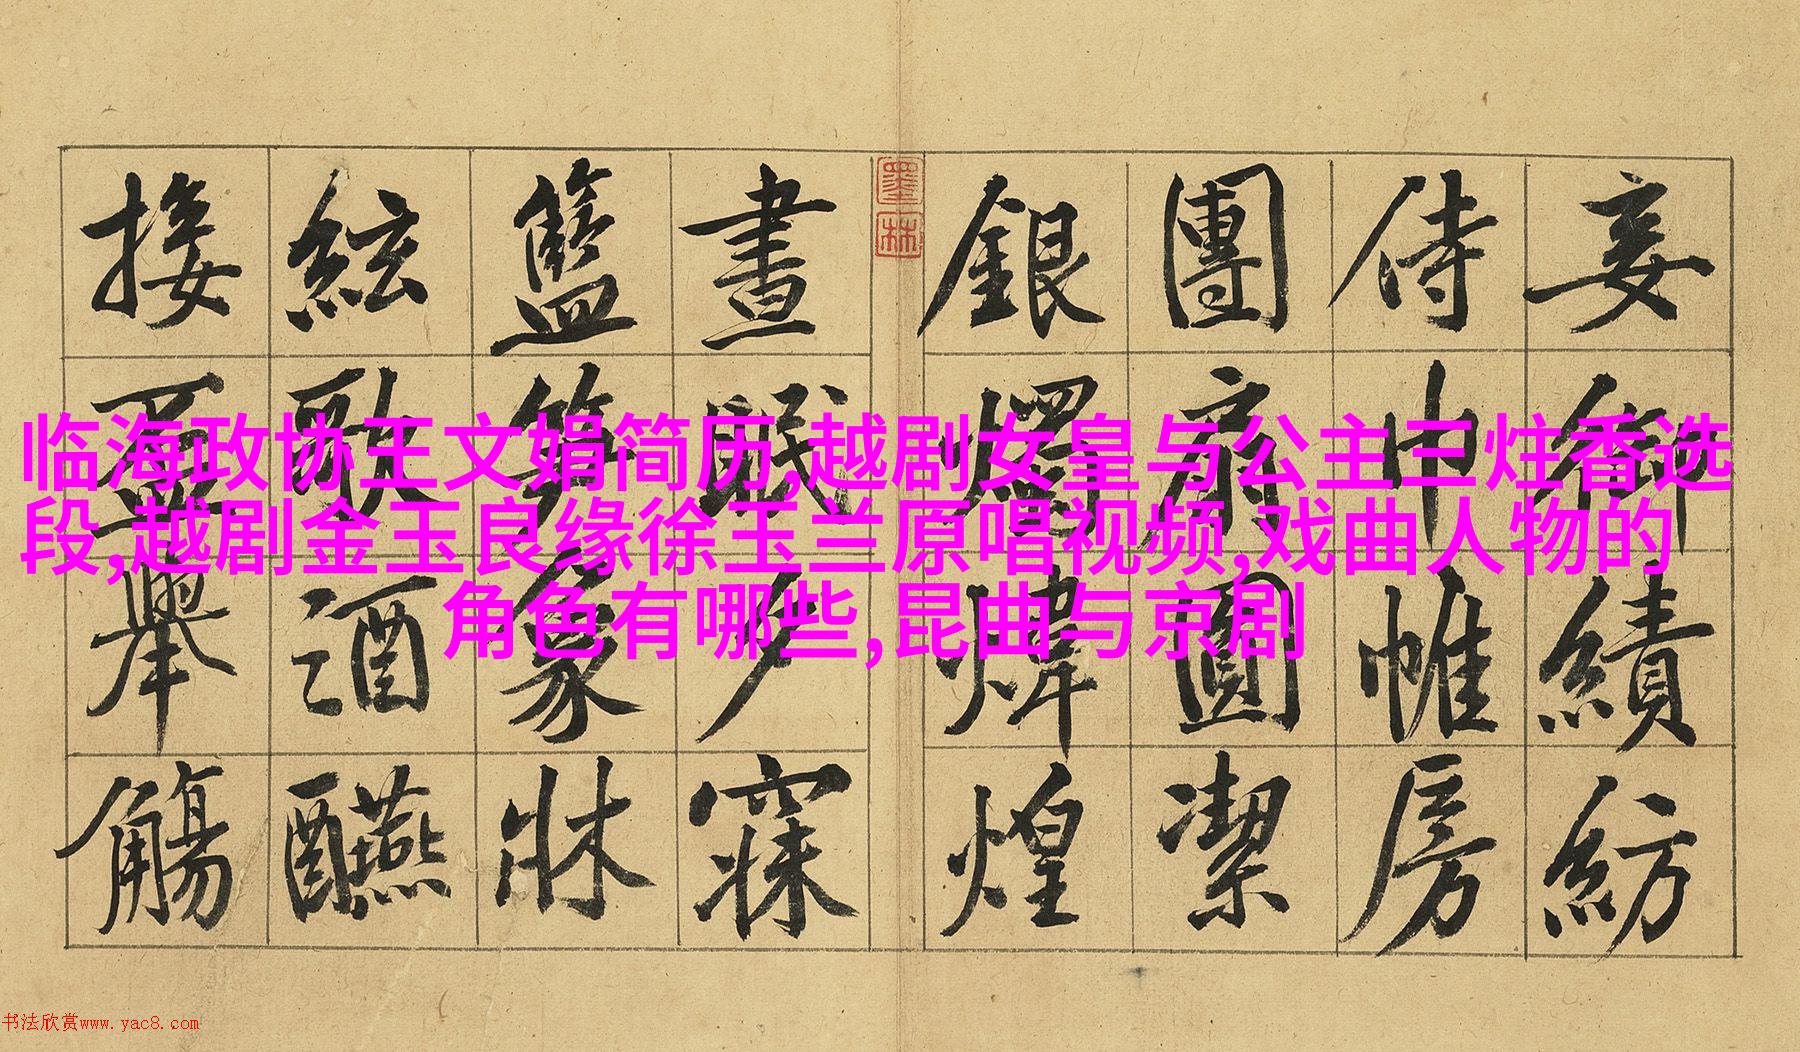 临海政协王文娟简历,越剧女皇与公主三炷香选
段,越剧金玉良缘徐玉兰原唱视频,戏曲人物的
角色有哪些,昆曲与京剧
妾御績紡
侍巾帷房
團扇圓潔
銀燭煒煌
墨林
晝眠夕寐
籃笋象牀
絃歌酒醼
接盃舉觴
书法欣赏www.yac8.com